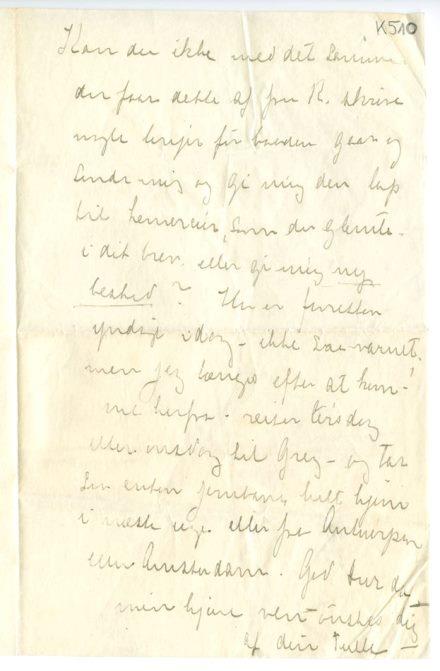 K510
Kan du ikke med det samme
du faar dette af fru R. skrive
nogle linjer før baaden gaar og
sende mig og gi mig den lap
til Lemercier, som du glemte
i dit brev. eller gi mig ny
besked? Her er forresten
yndigt idag – ikke saa varmt.
men jeg længes efter at kom-
me herfra – reiser tirsdag
eller onsdag til Grez – og tar
saa enten jernbane helt hjem
i næste uge eller fra Antwerpen
eller Amsterdam. God tur da
min kjære ven ønskes dig
af din Tulle